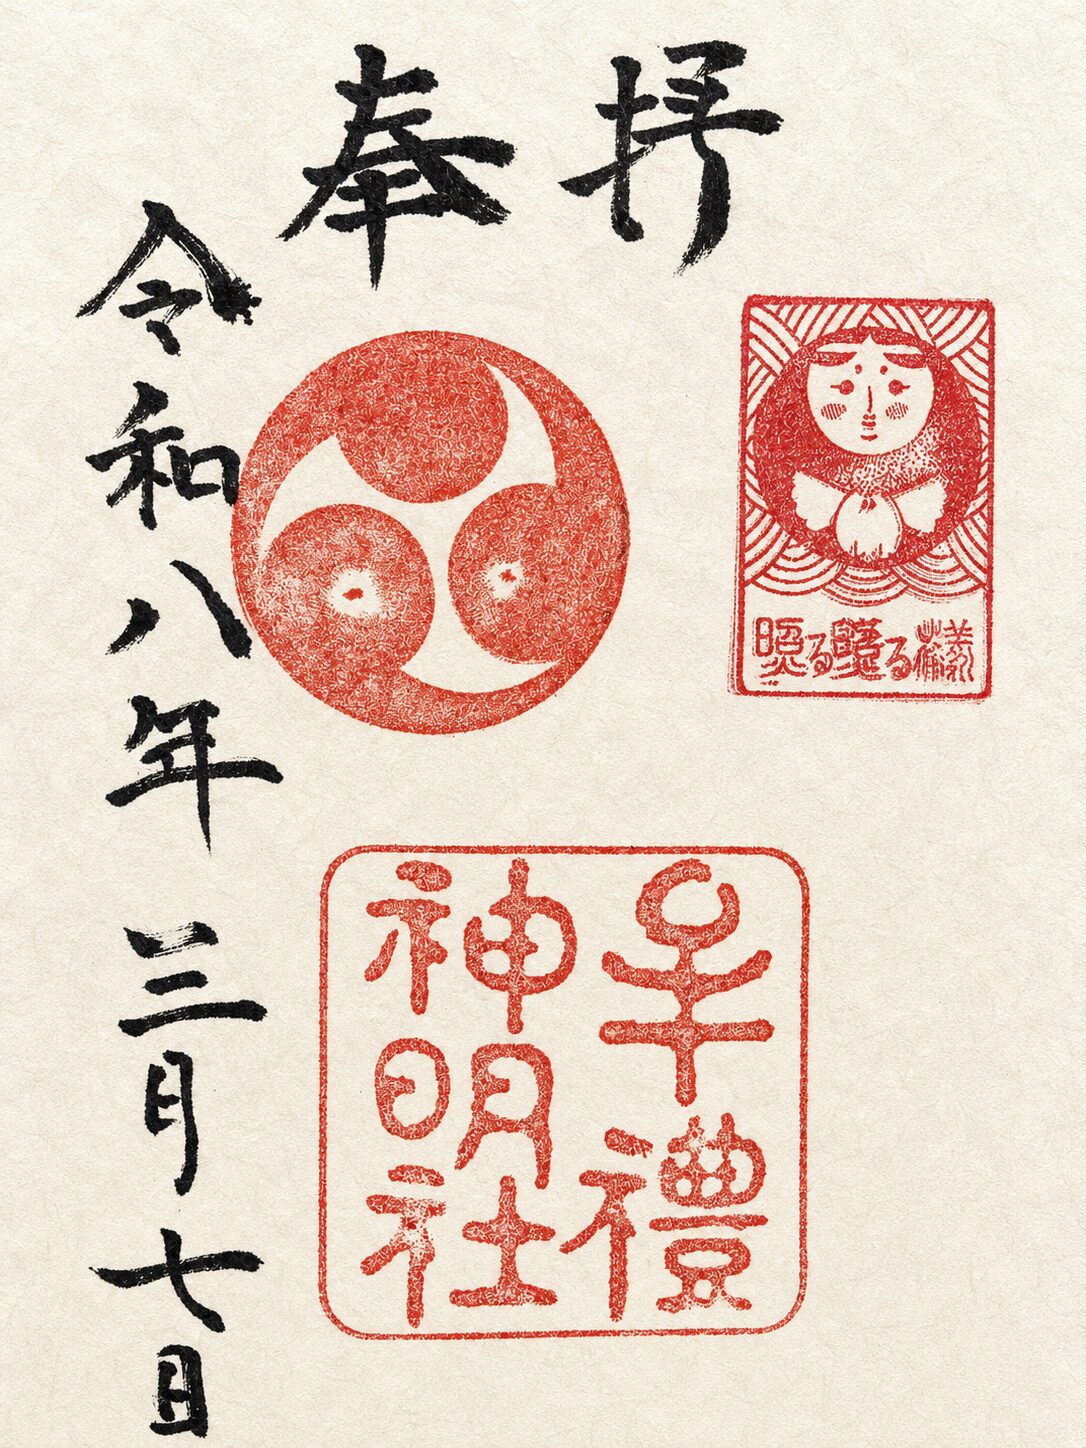 奉拝
令和八年三月七日
牟禮
神明社